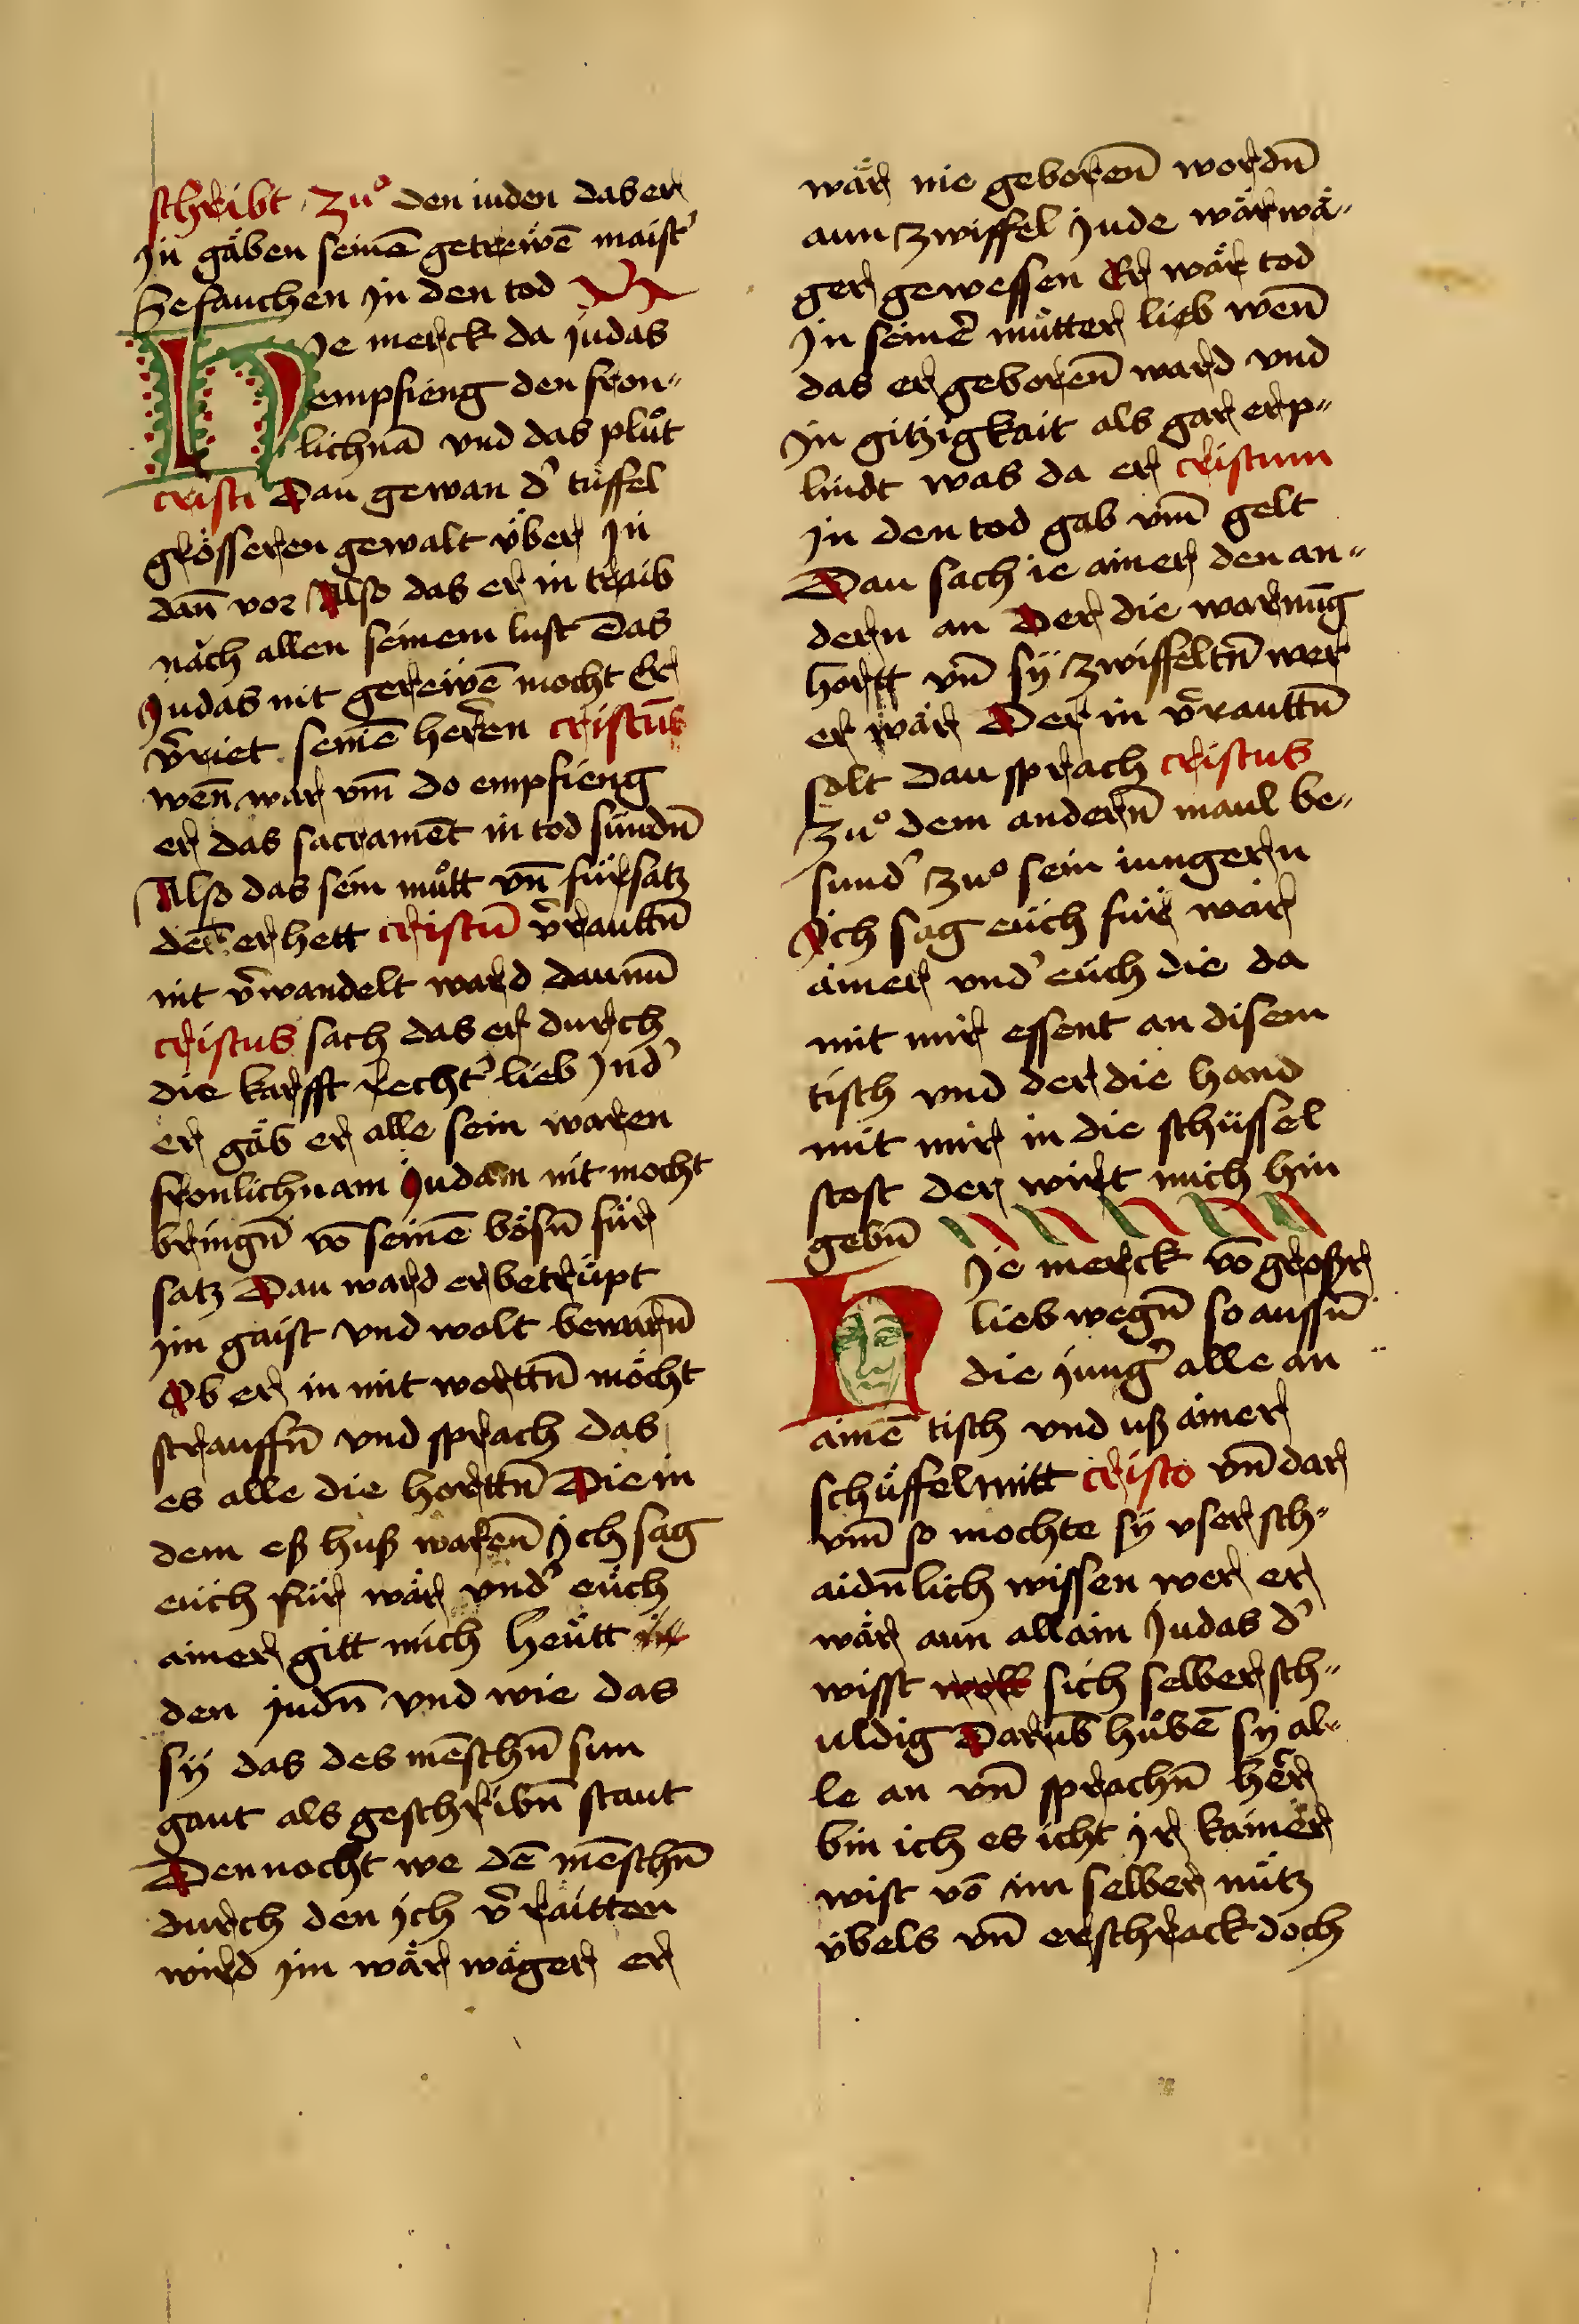 schribt zuͦ den iuden das er
Jn gäben seinē getrewē maist'
Befauchen Jn den tod
HJe merck da judas
empfieng den fron-
lichnā vnd das pluͦt
cristi Dau gewan d' tüffel
grösseren gewalt über Jn
dan̄ vor Also das er in traib
nach allen seinem lust Das
Judas nit gerewē mocht Er
v̄riet seinē heren cristūs
wen̄ war vm̄ do empfieng
er das sacramēt in tod sündn̄
Also das sein muͦtt vn̄ fürsatz
den er hett cristū v̄rauttn̄
nit v̄wandelt ward Daunū
cristus sach das er durch
die karfft recht' lieb Jnd'
er gäb er alle sein waren
fronlichnam Judam nit mocht
bringn̄ vō seinē bösn̄ für
satz Dau ward er betrüpt
jm gaist vnd wolt bewarn̄
Ob er in mit worttn̄ möcht
strauffn̄ vnd sprach das
es alle die horttn̄ Die in
dem eß huß waren̄ Jch sag
eüch für wär vnd' eüch
ainer gitt mich heütt
den judn̄ vnd wie das
sÿ das des mēschn̄ sun
gaut als geschribn̄ staut
Dennocht we dē mēschn̄
durch den ich v̄raitten
wird jm wär wäger er
wär nie geboren̄ wordn̄
aun zwiffel Jude wär wä-
ger gewessen Er wär tod
Jn seinēr muͦtter lieb wen̄
das er geboren̄ ward vnd
Jn gitzigkait als gar erp-
lindt was da er cristum
Jn den tod gab vm̄ gelt
Dau sach ie ainer den an-
dern an Der die warnūg
hortt vn̄ sÿ zwiffeltn̄ wer
er wär Der in v̄rauttn̄
solt Dau sprach cristus
zuͦ dem andern̄ maul be-
sund' zuͦ sein jungern
Jch sag eüch für wär
ainer vnd' eüch die da
mit mir essent an disem
tisch vnd der die hand
mit mir in die schüssel
stost der wirt mich hin
gebn̄
HJe merck vō großer
lieb wegn̄ so aussn̄
die jung' alle an
ainē tisch vnd uß ainer
schüssel mitt cristo vn̄ dar
vm̄ so mochte sÿ vser sch-
aidn̄lich wissen wer er
wär aun allain Judas d'
wisst wol sich selber sch-
uldig Darūb huͦbē sÿ al-
le an vn̄ sprachn̄ her
bin ich es icht jr kainer
wist vō im selber nütz
übels vn̄ erschrack doch